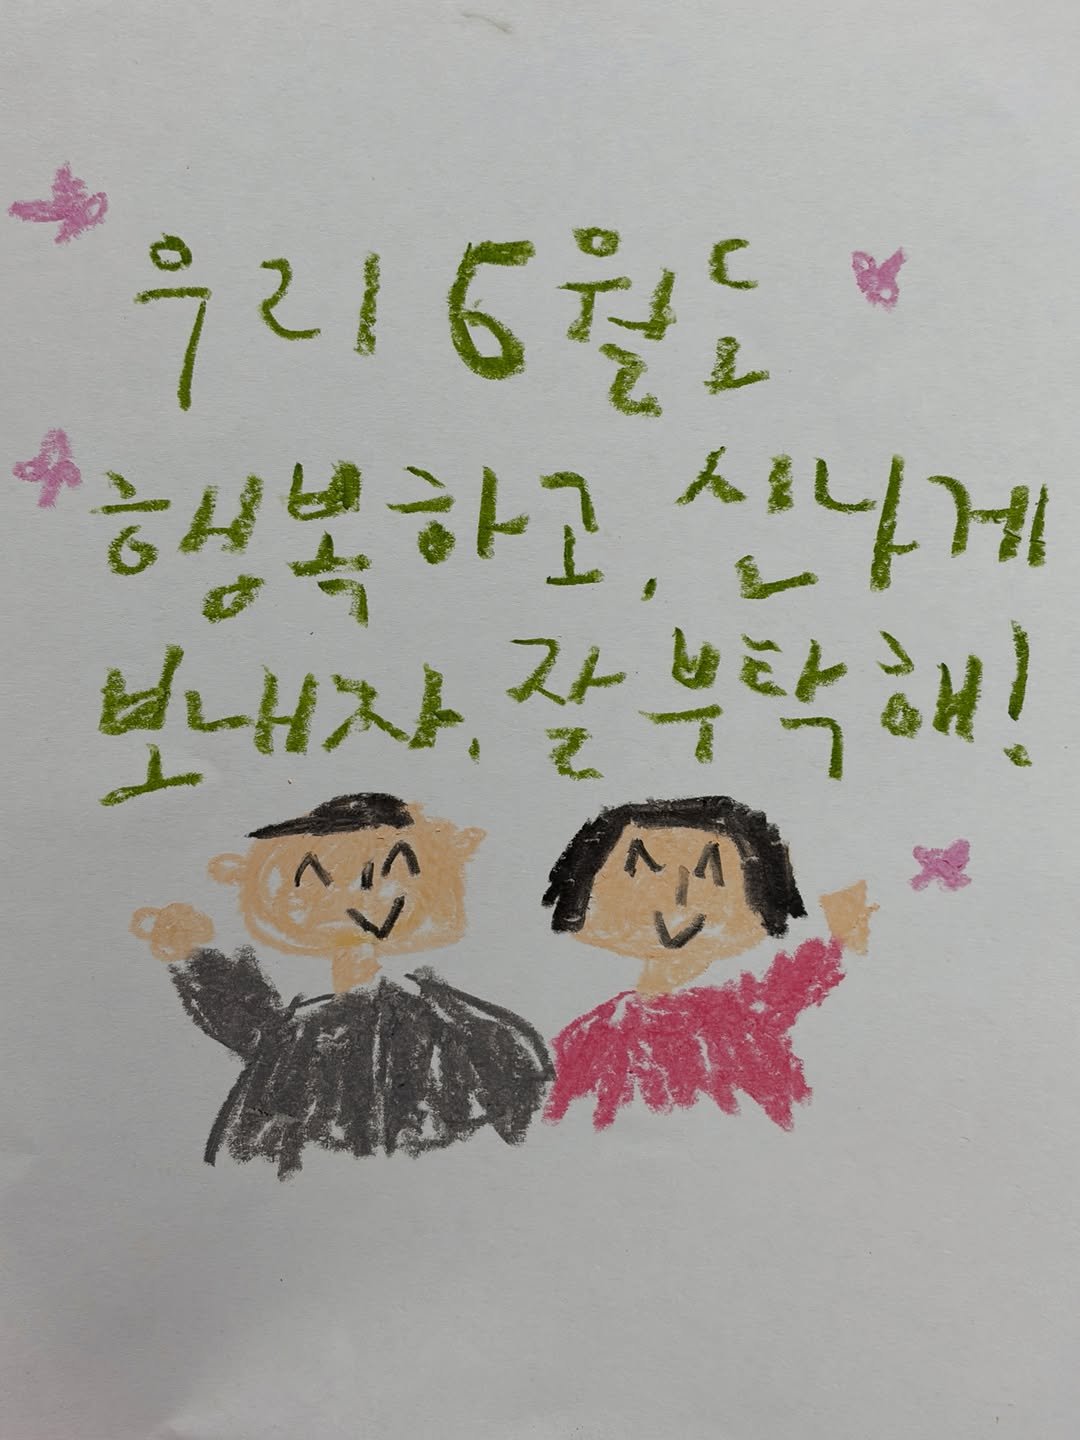 우리 6월도
행복하고, 신나게
보내자, 잘 부탁해!